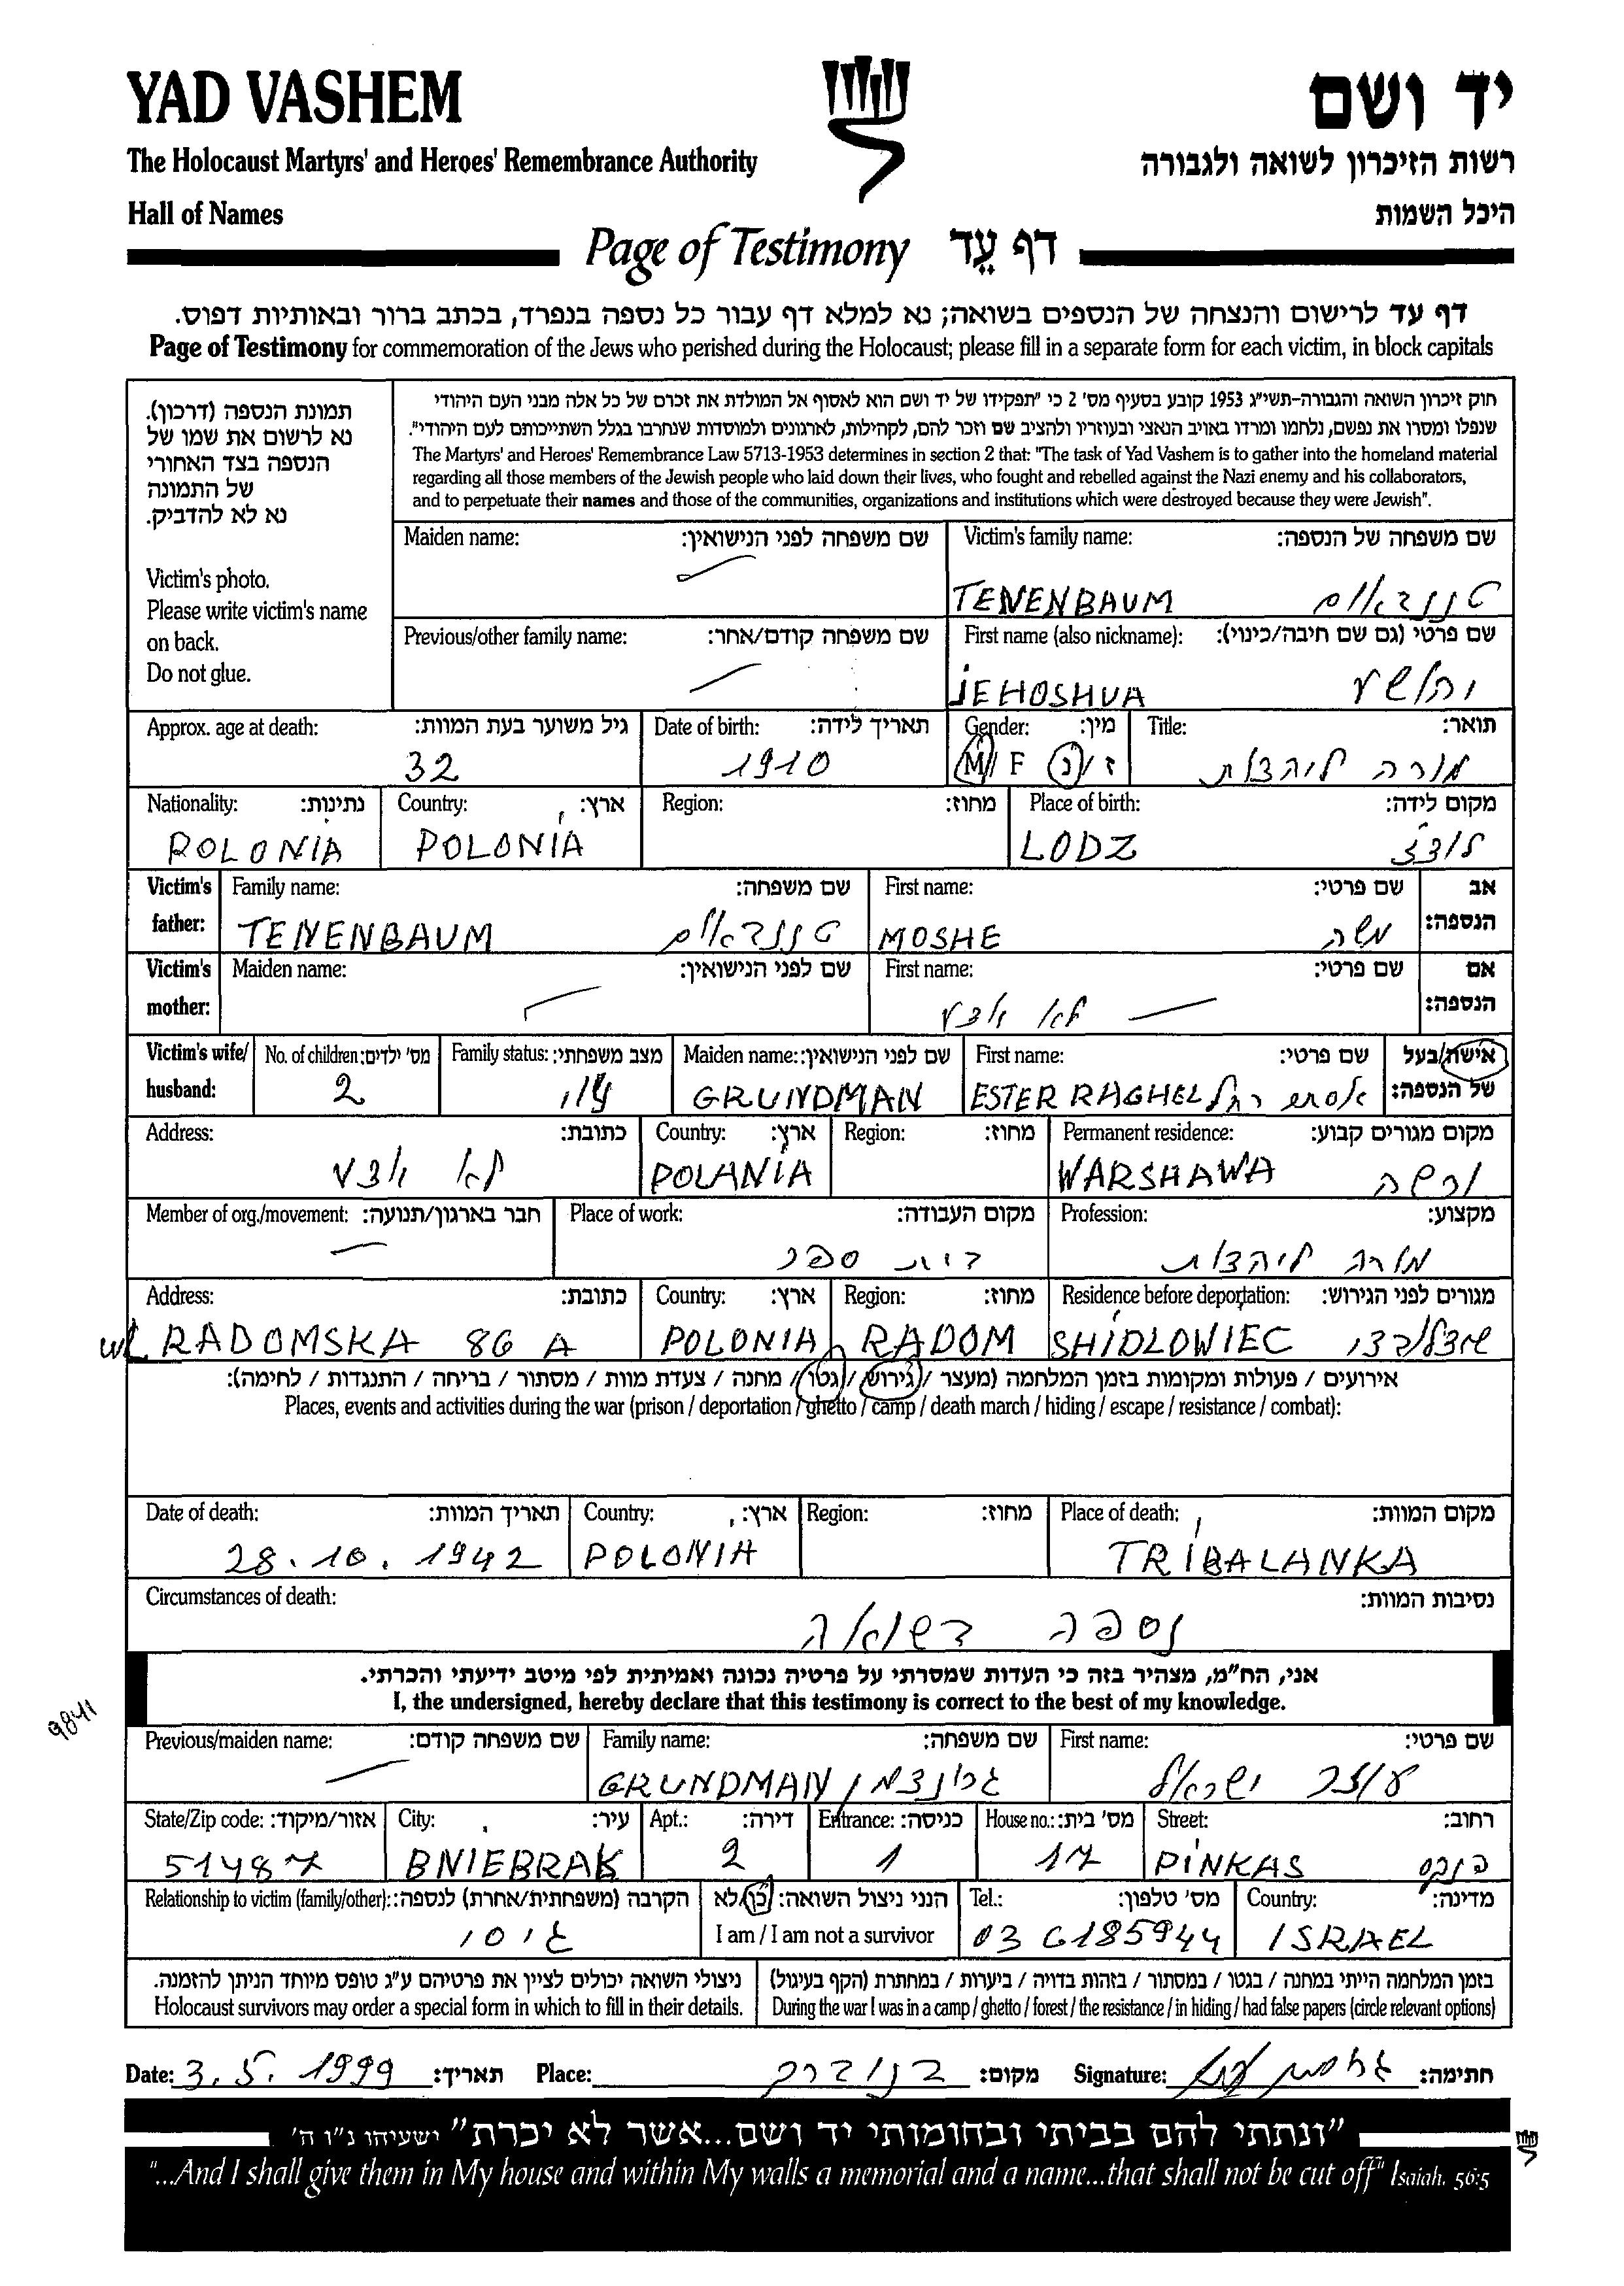 YAD VASHEM
יד ושם
The Holocaust Martyrs' and Heroes' Remembrance Authority
רשות הזיכרון לשואה ולגבורה
Hall of Names
היכל השמות
Page of Testimony דף עֵד
דף עד לרישום והנצחה של הנספים בשואה; נא למלא דף עבור כל נספה בנפרד, בכתב ברור ובאותיות דפוס.
Page of Testimony for commemoration of the Jews who perished during the Holocaust; please fill in a separate form for each victim, in block capitals
תמונת הנספה (דרכון).
נא לרשום את שמו של
הנספה בצד האחורי
של התמונה
נא לא להדביק.
Victim's photo.
Please write victim's name
on back.
Do not glue.
חוק זיכרון השואה והגבורה-תשי"ג 1953 קובע בסעיף מס' 2 כי "תפקידו של יד ושם הוא לאסוף אל המולדת את זכרם של כל אלה מבני העם היהודי
שנפלו ומסרו את נפשם, נלחמו ומרדו באויב הנאצי ובעוזריו ולהציב שם וזכר להם, לקהילות, לארגונים ולמוסדות שנחרבו בגלל השתייכותם לעם היהודי".
The Martyrs' and Heroes' Remembrance Law 5713-1953 determines in section 2 that: "The task of Yad Vashem is to gather into the homeland material
regarding all those members of the Jewish people who laid down their lives, who fought and rebelled against the Nazi enemy and his collaborators,
and to perpetuate their names and those of the communities, organizations and institutions which were destroyed because they were Jewish".
Maiden name: שם משפחה לפני הנישואין: Victim's family name: שם משפחה של הנספה:
TENENBAUM טננבאום
Previous/other family name: שם משפחה קודם/אחר: First name (also nickname): שם פרטי (גם שם חיבה/כינוי):
JEHOSHUA יהושע
Approx. age at death: גיל משוער בעת המוות: Date of birth: תאריך לידה: Gender: מין: Title: תואר:
32 1910 M/ F ז /נ מורה ליהדות
Nationality: נתינות: Country: ארץ: Region: מחוז: Place of birth: מקום לידה:
POLONIA POLONIA LODZ לודז
Victim's father: Family name: שם משפחה: First name: שם פרטי: אב הנספה:
TENENBAUM טננבאום MOSHE משה
Victim's mother: Maiden name: שם לפני הנישואין: First name: שם פרטי: אם הנספה:
לא ידוע
Victim's wife/ husband: No. of children: מס' ילדים: Family status: מצב משפחתי: Maiden name: שם לפני הנישואין: First name: שם פרטי: אישה/בעל של הנספה:
2 נשוי GRUNDMAN ESTER RAGHEL אסתר רחל
Address: כתובת: Country: ארץ: Region: מחוז: Permanent residence: מקום מגורים קבוע:
לא ידוע POLANIA WARSHAWA ורשה
Member of org./movement: חבר בארגון/תנועה: Place of work: מקום העבודה: Profession: מקצוע:
בית ספר מורה ליהדות
Address: כתובת: Country: ארץ: Region: מחוז: Residence before deportation: מגורים לפני הגירוש:
UL RADOMSKA 86 A POLONIA RADOM SHIDLOWIEC
אירועים / פעולות ומקומות בזמן המלחמה (מעצר / גירוש / גטו / מחנה / צעדת מוות / מסתור / בריחה / התנגדות / לחימה):
Places, events and activities during the war (prison / deportation / ghetto / camp / death march / hiding / escape / resistance / combat):
Date of death: תאריך המוות: Country: ארץ: Region: מחוז: Place of death: מקום המוות:
28.10.1942 POLONIA TRIBALANKA
Circumstances of death: נסיבות המוות:
נספה בשואה
אני, הח"מ, מצהיר בזה כי העדות שמסרתי על פרטיה נכונה ואמיתית לפי מיטב ידיעתי והכרתי.
I, the undersigned, hereby declare that this testimony is correct to the best of my knowledge.
9841
Previous/maiden name: שם משפחה קודם: Family name: שם משפחה: First name: שם פרטי:
GRUNDMAN גרונדמן ישראל
State/Zip code: אזור/מיקוד: City: עיר: Apt.: דירה: Entrance: כניסה: House no.: מס' בית: Street: רחוב:
51487 BNIEBRAK 2 1 17 PINKAS פנקס
Relationship to victim (family/other): הקרבה (משפחתית/אחרת) לנספה: הנני ניצול השואה: כן/לא Tel.: מס' טלפון: Country: מדינה:
גיסי I am / I am not a survivor 03 6185944 ISRAEL
ניצולי השואה יכולים לציין את פרטיהם ע"ג טופס מיוחד הניתן להזמנה. בזמן המלחמה הייתי במחנה / בגטו / במסתור / בזהות בדויה / ביערות / במחתרת (הקף בעיגול)
Holocaust survivors may order a special form in which to fill in their details. During the war I was in a camp / ghetto / forest / the resistance / in hiding / had false papers (circle relevant options)
Date: 3.5.1999 תאריך: Place: בני ברק מקום: Signature: חתימה:
"ונתתי להם בביתי ובחומותי יד ושם...אשר לא יכרת" ישעיהו נ"ו ה'
"...And I shall give them in My house and within My walls a memorial and a name...that shall not be cut off" Isaiah. 56:5